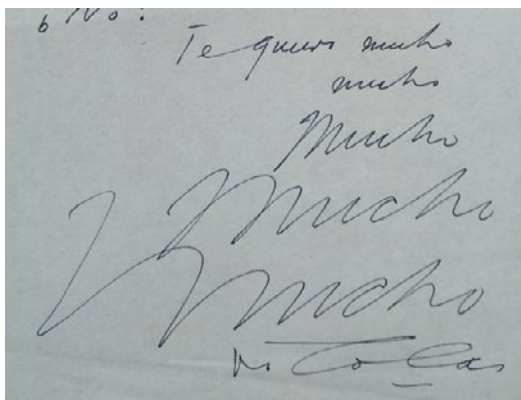 o No?
Te quiero mucho
mucho
Mucho
Mucho
y mucho
Nicolás